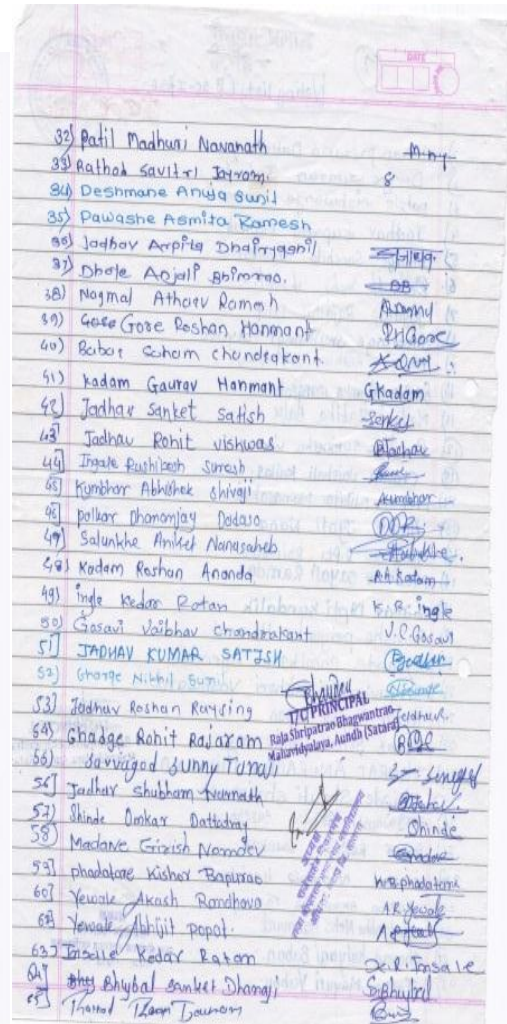 DATE
32) Patil Madhuri Navanath
33) Rathod Savitri Jayram.
34) Deshmane Anuja Sunil
35) Pawashe Asmita Ramesh
36) Jadhav Arpita Dhairyashil
37) Dhole Anjali Bhimrao.
38) Nagmal Atharv Ramesh
39) Gore Roshan Hanmant PHGore
40) Babar Soham Chandrakant.
41) Kadam Gaurav Hanmant GKadam
42) Jadhav Sanket Satish Sanket
43) Jadhav Rohit Vishwas
44) Ingale Rushikesh Suresh
45) Kumbhar Abhishek Shivaji Kumbhar
46) Polkar Dhananjay Dadaso
47) Salunkhe Aniket Nanasaheb
48) Kadam Roshan Ananda R.A.Kadam
49) ingle Kedar Ratan K.R. ingle
50) Gosavi Vaibhav Chandrakant V.C.Gosavi
51] JADHAV KUMAR SATISH
52) Gharge Nikhil Sunil Gharge
53] Jadhav Roshan Raysing
I/C PRINCIPAL
Raja Shripatrao Bhagwantrao
Mahavidyalaya, Aundh (Satara)
54) Ghadge Rohit Rajaram
55) Sarvagod Sunny Tanaji
56] Jadhav Shubham Navnath
57) Shinde Omkar Dattatray Shinde
58) Madane Girish Namdev
59] Phadatare Kishor Bapurao K.B.phadatare
60) Yewale Akash Ramdhava A.R.Yewale
Yewale Abhijit Popat.
63) Insale Kedar Ratam K.R.Insale
64] Bhujbal Sanket Dhanaji S.Bhujbal